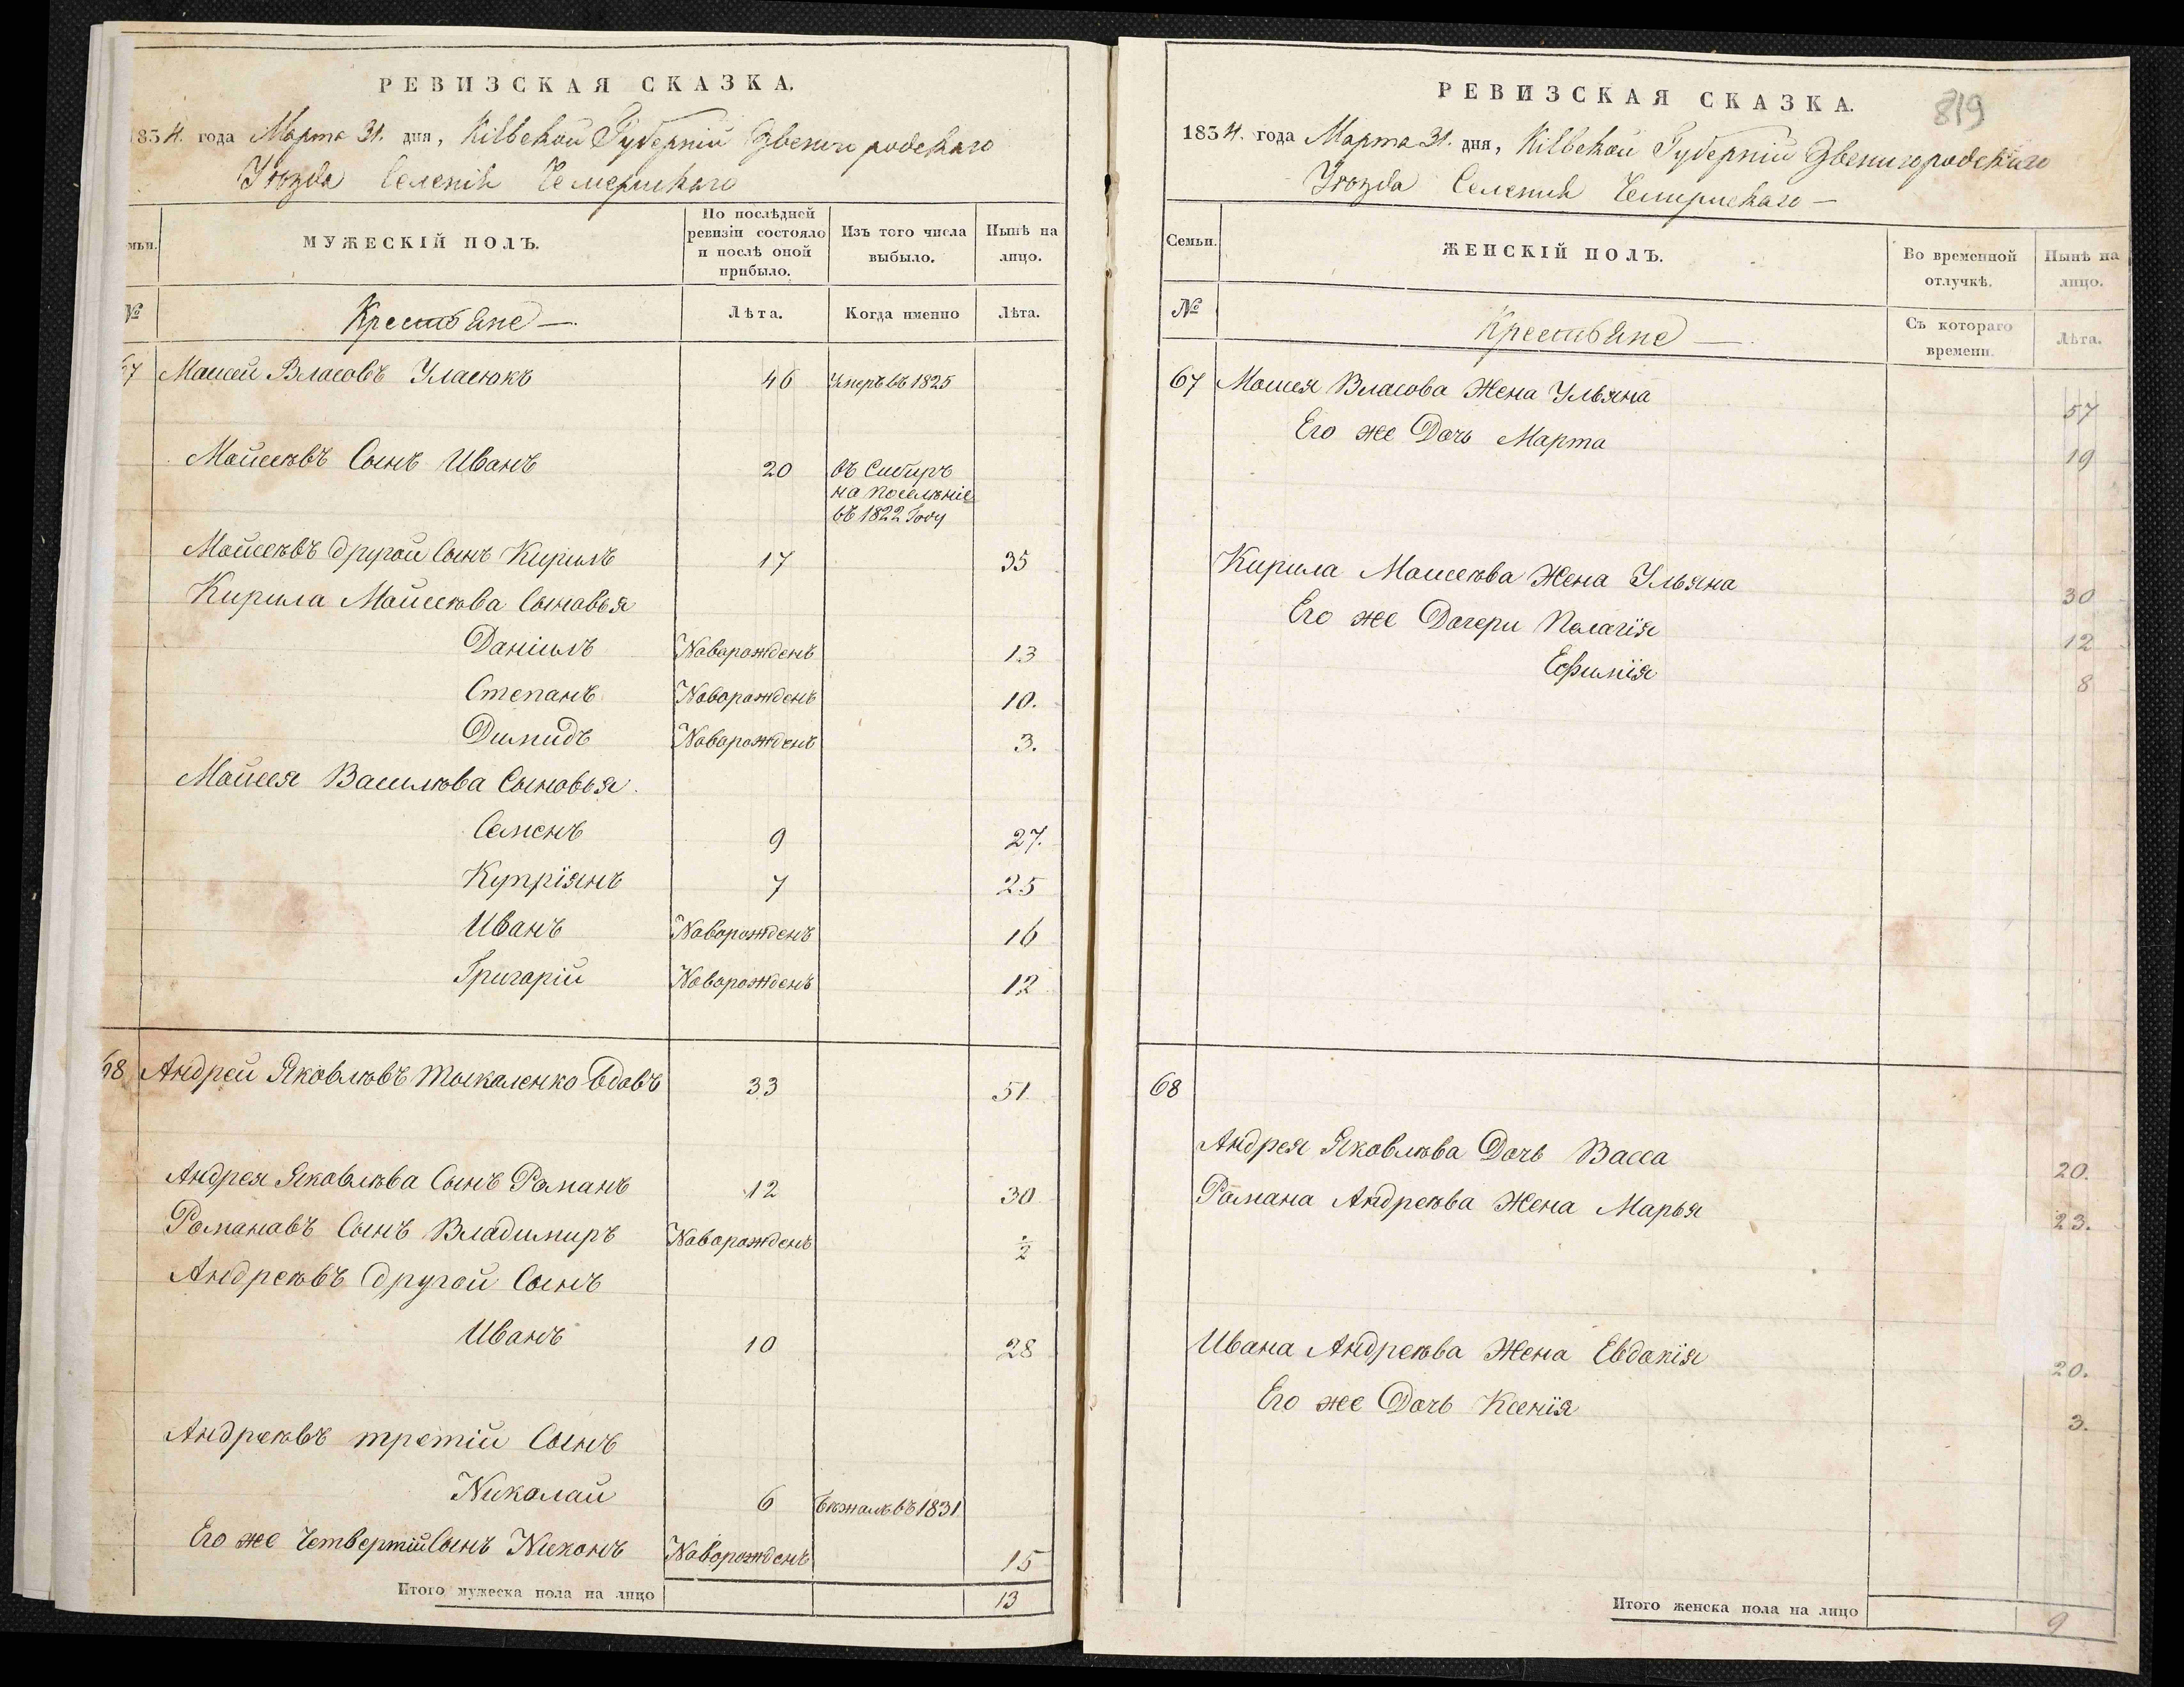 РЕВИЗСКАЯ СКАЗКА.
1834. года Марта 31. дня, Кіевской Губерніи Звенигородскаго
Уѣзда Селенія Чемерискаго
мьи.
МУЖЕСКІЙ ПОЛЪ.
По послѣдней ревизіи состояло и послѣ оной прибыло.
Изъ того числа выбыло.
Нынѣ на лицо.
№
Крестьяне —.
Лѣта.
Когда именно
Лѣта.
67 Моисей Власовъ Уласюкъ 46 Умеръ въ 1825
Мойсеѣвъ Сынъ Иванъ 20 въ Сибиръ
на поселѣніе
въ 1822 Году
Мойсеѣвъ другой Сынъ Кирилъ 17 35
Кирила Мойсеѣва Сыновья
Даніилъ Новорожденъ 13
Степанъ Новорожденъ 10.
Димидъ Новорожденъ 3.
Мойсея Василѣва Сыновья.
Семенъ 9 27.
Купріянъ 7 25
Иванъ Новорожденъ 16
Григорій Новорожденъ 12
68 Андрей Яковлѣвъ Москаленко вдовъ 33 51
Андрея Яковлѣва Сынъ Романъ 12 30
Романовъ Сынъ Владимиръ Новорожденъ ½
Андреѣвъ другой Сынъ
Иванъ 10 28
Андреѣвъ третій Сынъ
Николай 6 Бѣжалъ въ 1831
Его же Четвертій Сынъ Никонъ Новорожденъ 15
Итого мужеска пола на лицо 13
РЕВИЗСКАЯ СКАЗКА.
819
1834. года Марта 31. дня, Кіевской Губерніи Звенигородскаго
Уѣзда Селенія Чемирискаго —
Семьи.
ЖЕНСКІЙ ПОЛЪ.
Во временной отлучкѣ.
Нынѣ на лицо.
№
Крестьяне —.
Съ котораго времени.
Лѣта.
67 Моисея Власова Жена Ульяна 57
Его же Дочь Марта 19
Кирила Моисеѣва Жена Ульяна 30
Его же Дочери Пелагія 12
Ефимія 8
68
Андрея Яковлѣва Дочь Васса 20.
Романа Андреѣва Жена Марья 23.
Ивана Андреѣва Жена Евдокія 20.
Его же Дочь Ксенія 3.
Итого женска пола на лицо 9